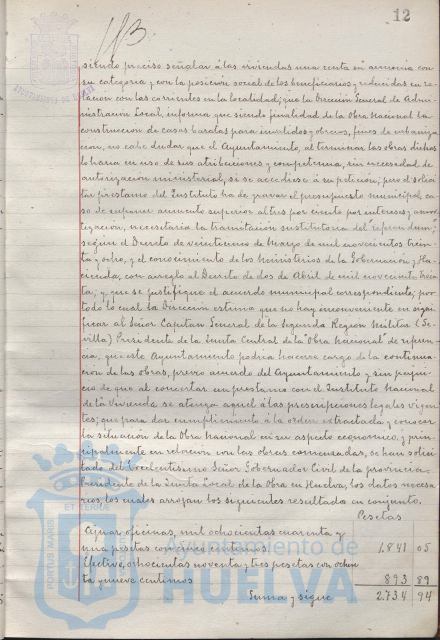 113
12
AYUNTAMIENTO DE HUELVA
siendo preciso señalar á las viviendas una renta en armonía con
su categoría y con la posición social de los beneficiarios, reducidas en re-
lación con las corrientes en la localidad; que la Dirección General de Admi-
nistración Local, informa que siendo finalidad de la Obra Nacional la
construcción de casas baratas para inválidos y obreros, fines de urbaniza-
ción, no cabe dudar que el Ayuntamiento, al terminar las obras dichas
lo haría en uso de sus atribuciones y competencia, sin necesidad de
autorización ministerial, si se accediese á su petición; pero si solici-
tar préstamo del Instituto ha de gravar el presupuesto municipal, ca-
so de suponer aumento superior al tres por ciento por intereses y amor-
tización, necesitaría la tramitación sustitutoria del referendum,
según el Decreto de veinticinco de Marzo de mil novecientos trein-
ta y ocho, y el conocimiento de los Ministerios de la Gobernación y Ha-
cienda, con arreglo al Decreto de dos de Abril de mil novecientos trein-
ta; y que se justifique el acuerdo municipal correspondiente; por
todo lo cual la Dirección estima que no hay inconveniente en signi-
ficar al Señor Capitán General de la Segunda Región Militar (Se-
villa) Presidente de la Junta Central de la "Obra Nacional" de referen-
cia, que este Ayuntamiento podría hacerse cargo de la continua-
ción de las obras, previo acuerdo del Ayuntamiento y sin perjui-
cio de que al concertar un préstamo con el Instituto Nacional
de la Vivienda se atenga aquel á las prescripciones legales vigen-
tes; que para dar cumplimiento á la orden extractada y conocer
la situación de la Obra Nacional en su aspecto económico, y prin-
cipalmente en relación con las obras comenzadas, se han solici-
tado del Excelentísimo Señor Gobernador Civil de la provincia
Presidente de la Junta Local de la Obra en Huelva, los datos necesa-
rios, los cuales arrojan los siguientes resultados en conjunto.
Pesetas
Ajuar, oficinas, mil ochocientas cuarenta y
una pesetas con cinco céntimos 1.841 05
Efectivo, ochocientas noventa y tres pesetas con ochen-
ta y nueve céntimos 893 89
Suma y sigue 2.734 94
PORTUS MARIS ET TERRAE
Ayuntamiento de
HUELVA